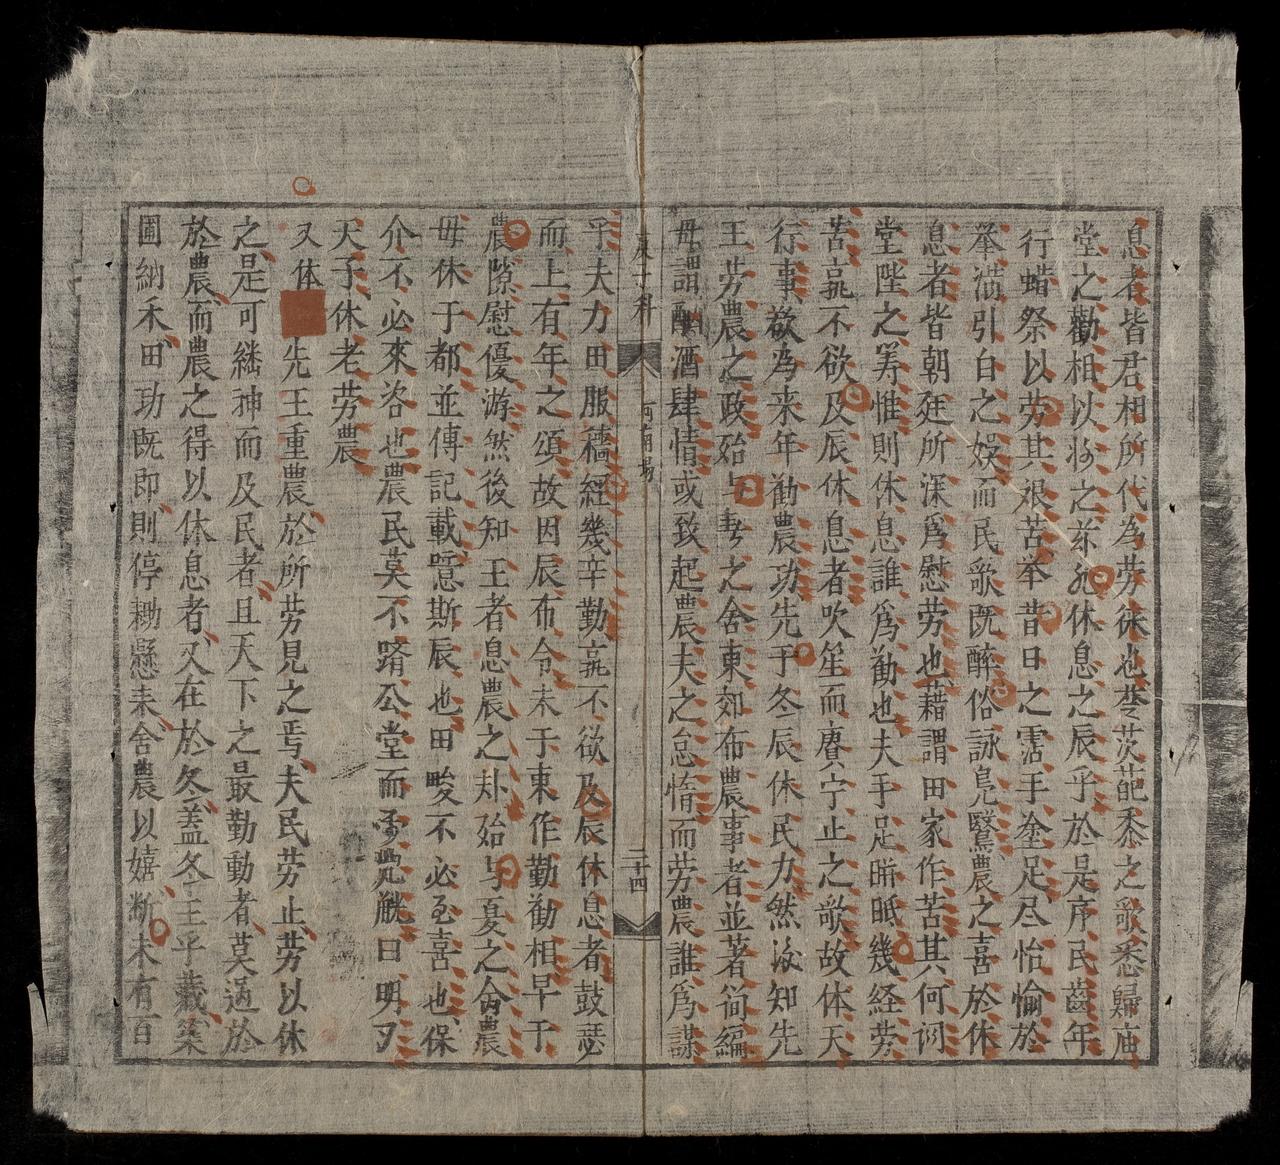 息者皆君相所代為劳徠也苓茨葩黍之歌悉歸庙
堂之勸相以將之茶休息之辰乎於是序民齒年
行蜡祭以劳其艰苦举昔日之霑手塗足尽怡愉於
举满引白之娱而民歌既醉俗詠凫鷖農之喜於休
息者皆朝廷所深爲慰劳也藉謂田家作苦其何问
堂陛之筹惟則休息誰爲勧也夫手足胼胝幾経劳
苦孰不欲及辰休息者吹笙而賡宁止之歌故体天
行事欲為来年勧農功先于冬辰休民力然後知先
王劳農之政殆与春之舍東郊布農事者並著简編
毋謂酗酒肆情或致起農夫之怠惰而劳農誰爲謀
二十四
乎夫力田服穡經幾辛勤孰不欲及辰休息者鼓瑟
而上有年之頌故因辰布令未于東作勤勧相早于
農隙慰優游然後知王者息農之赴殆与夏之命農
毋休于都並傳記載噫斯辰也田畯不必至喜也保
介不必來咨也農民莫不躋公堂而兕觥曰明夕
天子休老劳農
又体先王重農於所劳見之焉夫民劳止劳以休
之是可継神而及民者且天下之最勤動者莫過於
於農而農之得以休息者又在於冬蓋冬主乎藏築
圃納禾田功既即則停耡懸耒舍農以嬉断未有百